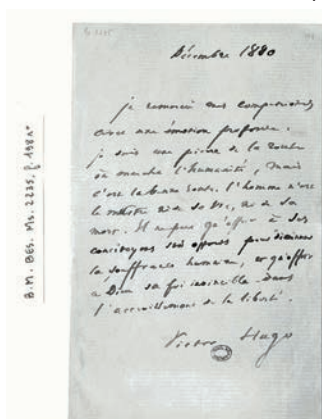 Décembre 1880
je remercie mes compatriotes
avec une émotion profonde.
je suis une pierre de la route
où marche l'humanité, mais
c'est la bonne route. l'homme n'est
le maître ni de sa vie, ni de sa
mort. Il ne peut qu'offrir à ses
concitoyens ses efforts pour diminuer
la souffrance humaine, et qu'offrir
à Dieu sa foi invincible dans
l'accroissement de la liberté.
Victor Hugo
B.M. BES. Ms. 2235, f. 198 r°